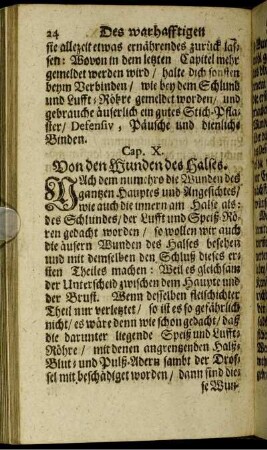 24 Des warhafftigen
sie allezeit etwas ernährendes zurück las-
sen: Wovon in dem letzten Capitel mehr
gemeldet werden wird / halte dich sonsten
beym Verbinden / wie bey dem Schlund
und Lufft-Röhre gemeldet worden / und
gebrauche äuserlich ein gutes Stich-Pfla-
ster / Defensiv, Päusche und dienliche
Binden.
Cap. X.
Von den Wunden des Halses.
NAch dem nun ihro die Wunden des
gantzen Hauptes und Angesichtes /
wie auch die innern am Halse als:
des Schlundes / der Lufft und Speiß-Rö-
ren gedacht worden / so wollen wir auch
die äusern Wunden des Halses besehen
und mit demselben den Schluß dieses er-
sten Theiles machen: Weil es gleichsam
der Unterscheid zwischen dem Haupte und
der Brust. Wenn desselben fleischichter
Theil nur verletzet / so ist es so gefährlich
nicht / es wäre denn wie schon gedacht / daß
die darunter liegende Speiß und Lufft-
Röhre / mit denen angrentzenden Halß-
Blut- und Pulß-Adern sambt der Dros-
sel mit beschädiget worden / dann sind die-
se Wun-